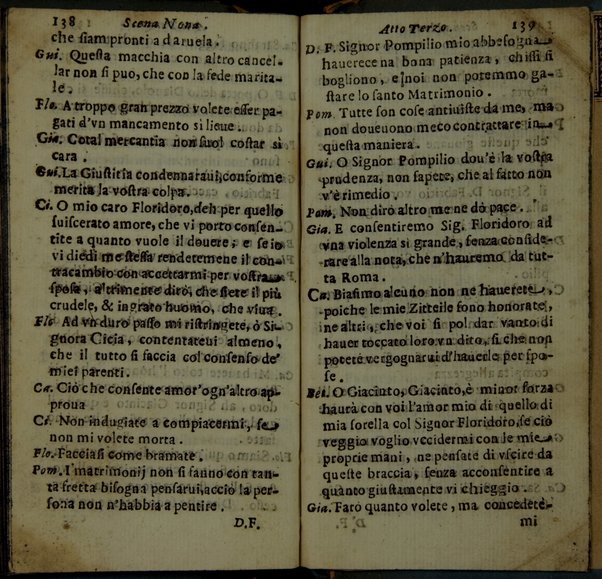 138 Scena Nona.
che siam pronti a daruela.
Gui. Questa macchia con altro cancel-
lar non si puo, che con la fede marita-
le.
Flo. A troppo gran prezzo volete esser pa-
gati d'vn mancamento sì lieue.
Gia. Cotal mercantia non suol costar sì
cara.
Gui. La Giustitia condennarauui, conforme
merita la vostra colpa.
Ci. O mio caro Floridoro, deh per quello
suiscerato amore, che vi porto consen-
tite a quanto vuole il douere, e se io
vi diedi me stessa rendetemene il con-
tracambio con accettarmi per vostra
sposa, altrimente dirò, che siete il più
crudele, & ingrato huomo, che viua.
Flo Ad vn duro passo mi ristringete, ò Si-
gnora Cicia, contentateui almeno,
che il tutto si faccia col consenso de'
miei parenti.
Ca. Ciò che consente amor'ogn'altro ap-
proua
Ci. Non indugiate a compiacermi, se
non mi volete morta.
Flo. Facciasi come bramate.
Pom. I matrimonij non si fanno con tan-
ta fretta bisogna pensarui, acciò la per-
sona non n'habbia a pentire.
D.F.
Atto Terzo. 139
D. F. Signor Pompilio mio abbesogna
hauerece na bona patienza, chissi sì
bogliono, e noi non potemmo ga-
stare lo santo Matrimonio.
Pom. Tutte son cose antiuiste da me, ma
non doueuono meco contrattare in
questa maniera.
Gui. O Signor Pompilio dou'è la vostra
prudenza, non sapete, che al fatto non
v'è rimedio.
Pom. Non dirò altro me ne dò pace.
Gia. E consentiremo Sig. Floridoro ad
vna violenza sì grande, senza conside-
rare alla nota, che n'hauremo da tut-
ta Roma.
Ca. Biasimo alcuno non ne hauerete,
poiche le mie Zitteile fono honorate,
ne altri, che voi si pol dar vanto di
hauer toccato loro vn dito, sì che non
potete vergognarui d'hauerle per spo-
se.
Bel. O Giacinto, Giacinto, è minor forza
haurà con voi l'amor mio di quello di
mia sorella col Signor Floridoro, se ciò
veggio voglio vccidermi con le mie
proprie mani, ne pensate di vscire da
queste braccia, senza acconsentire a
quanto giustamente vi chieggio.
Gia. Farò quanto volete, ma concedete-
mi